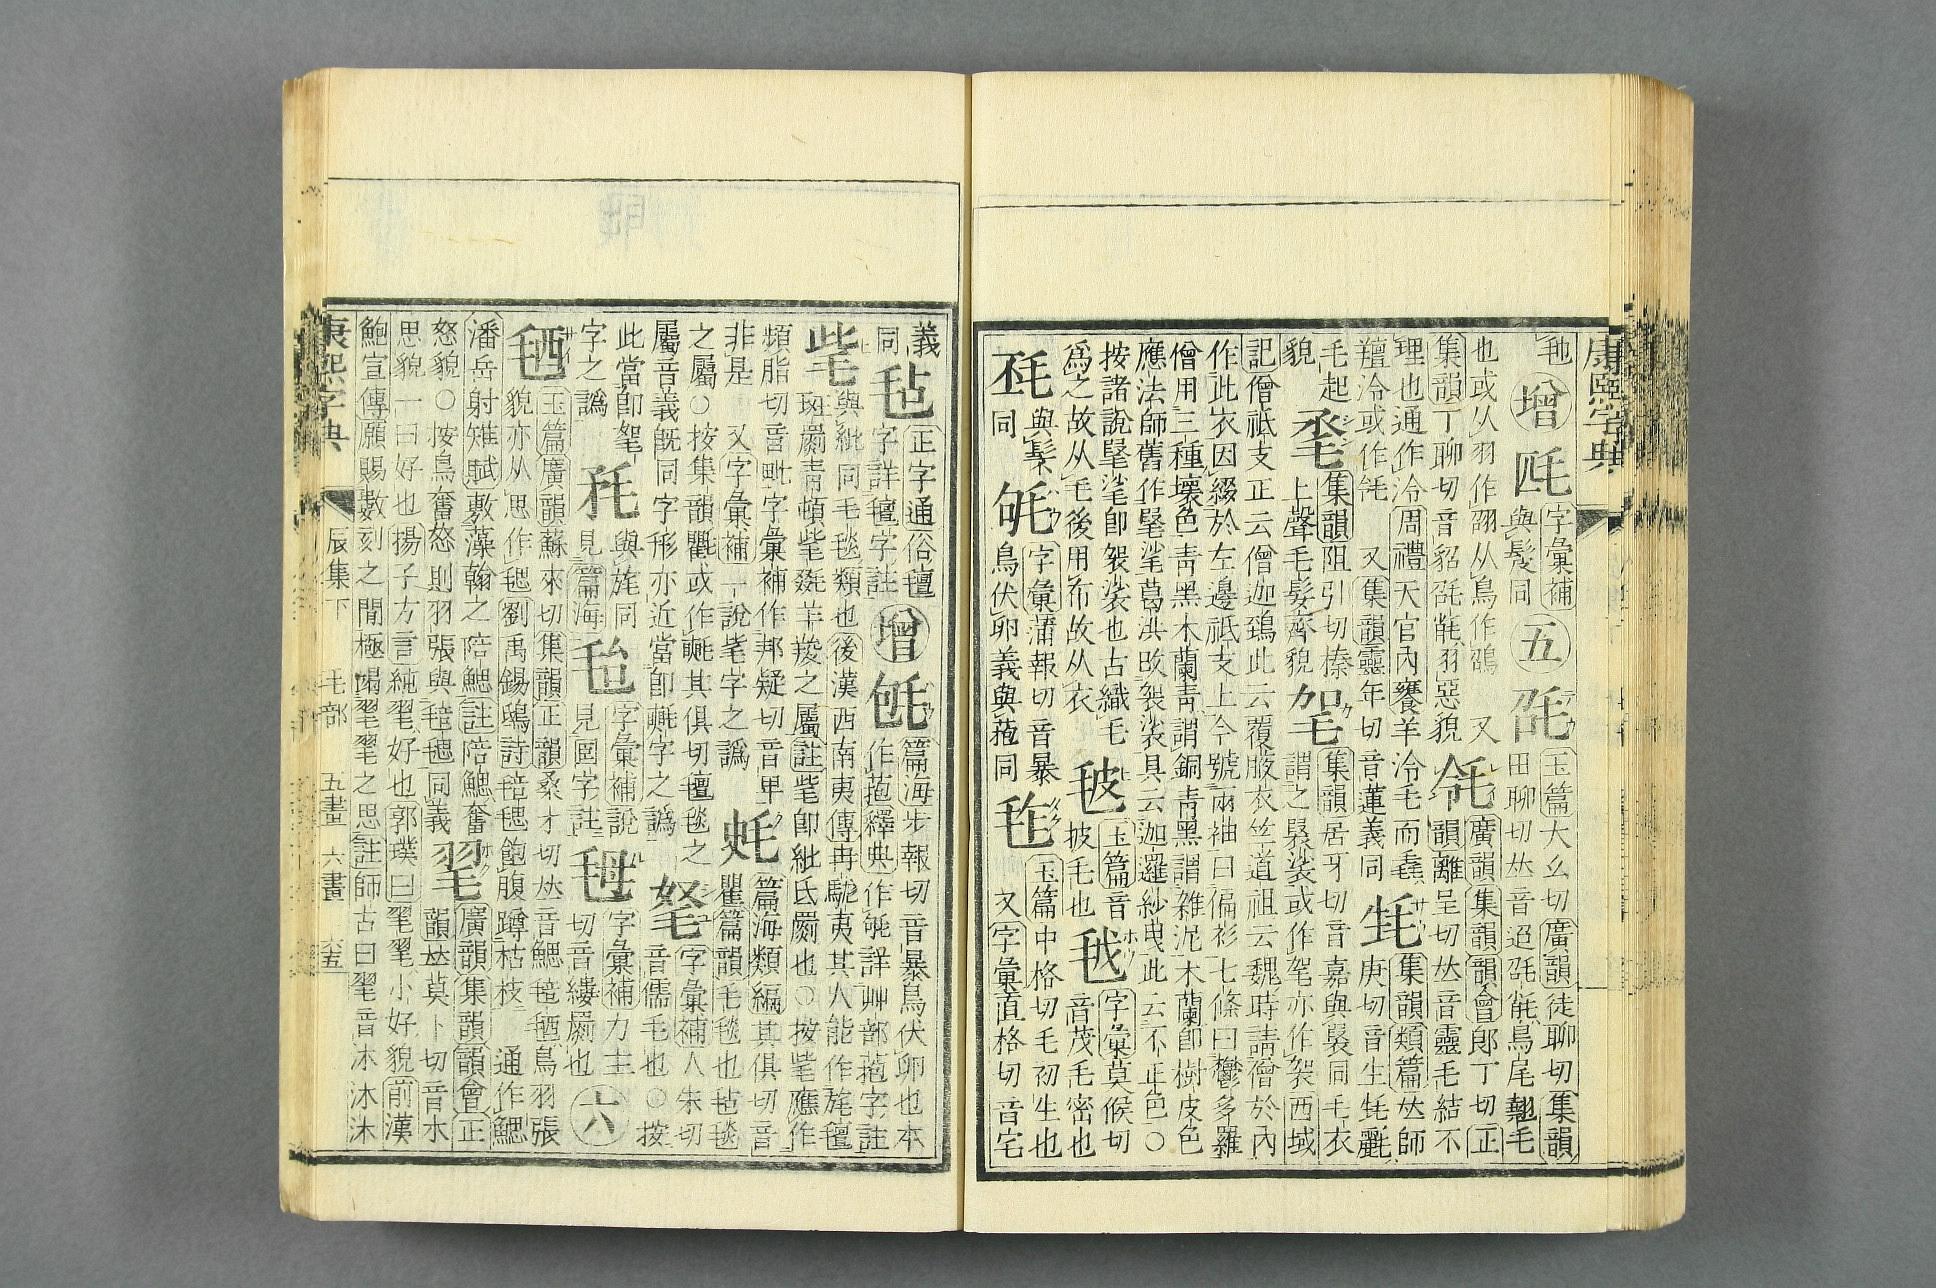 康熙字典
毦 增 𣬛 字彙補 與髮同 五 𣬸 玉篇大幺切廣韻徒聊切集韻
田聊切𠀤音迢𣬸毦鳥尾翹毛
也或从羽作𦐺从鳥作鴖 又
集韻丁聊切音貂𣬸毦羽惡貌 㲆 廣韻集韻韻會郎丁切正
韻離呈切𠀤音靈毛結不
理也通作泠周禮天官內饔羊泠毛而毳
羶泠或作㲆 又集韻靈年切音蓮義同 毪 集韻類篇𠀤師
庚切音生毪𣰽
毛起
貌 㲀 集韻阻引切榛
上聲毛髮齊貌 毠 集韻居牙切音嘉與袈同毛衣
謂之袈裟或作毠亦作袈西域
記僧祇支正云僧迦鵄此云覆腋衣竺道祖云魏時請僧於內
作此衣因綴於左邊祇支上今號兩袖曰偏衫七條曰鬱多羅
僧用三種壞色靑黑木蘭靑謂銅靑黑謂雜泥木蘭卽樹皮色
應法師舊作毠㲚葛洪攺袈裟具云迦邏紗曳此云不正色〇
按諸說毠㲚卽袈裟也古織毛
爲之故从毛後用布故从衣 㲋 玉篇音
披毛也 毧 字彙莫候切
音茂毛密也
𣬾 與髦
同 㲏 字彙蒲報切音暴
鳥伏卵義與菢同 毞 玉篇中格切毛初生也
又字彙直格切音宅
義
同 毡 正字通俗氊
字詳氊字註 增 㲒 篇海步報切音暴鳥伏卵也本
作菢釋典作㲏詳艸部菢字註
毞 與紕同毛毯類也後漢西南夷傳冉駹夷其人能作旄氊
班罽靑頓毞毲羊羧之屬註毞卽紕氏罽也〇按毞應作
頻脂切音毗字彙補作邦疑切音𤰞
非是 又字彙補一說毞字之譌 㲌 篇海類編其俱切音
瞿篇韻毛毯也毡毯
之屬〇按集韻氍或作㲘其俱切氊毯之
屬音義旣同字形亦近當卽㲘字之譌 㲎 字彙補人朱切
音儒毛也〇按
此當卽毠
字之譌 㲈 與旄同
見篇海 㲍 字彙補說
見囼字註 㲉 字彙補力主
切音縷罽也 六
毢 玉篇廣韻蘇來切集韻正韻桑才切𠀤音鰓毰毢鳥羽張
貌亦从思作毸劉禹錫鴟詩毰毸飽腹蹲枯枝 通作鰓
潘岳射雉賦敷藻翰之陪鰓註陪鰓奮
怒貌〇按鳥奮怒則羽張與毰毸同義 毣 廣韻集韻韻會正
韻𠀤莫卜切音木
思貌一曰好也揚子方言純毣好也郭璞曰毣毣小好貌前漢
鮑宣傳願賜數刻之閒極竭毣毣之思註師古曰毣音沐沐沐
康熙字典 辰集下 毛部 五畫 六畫 六五